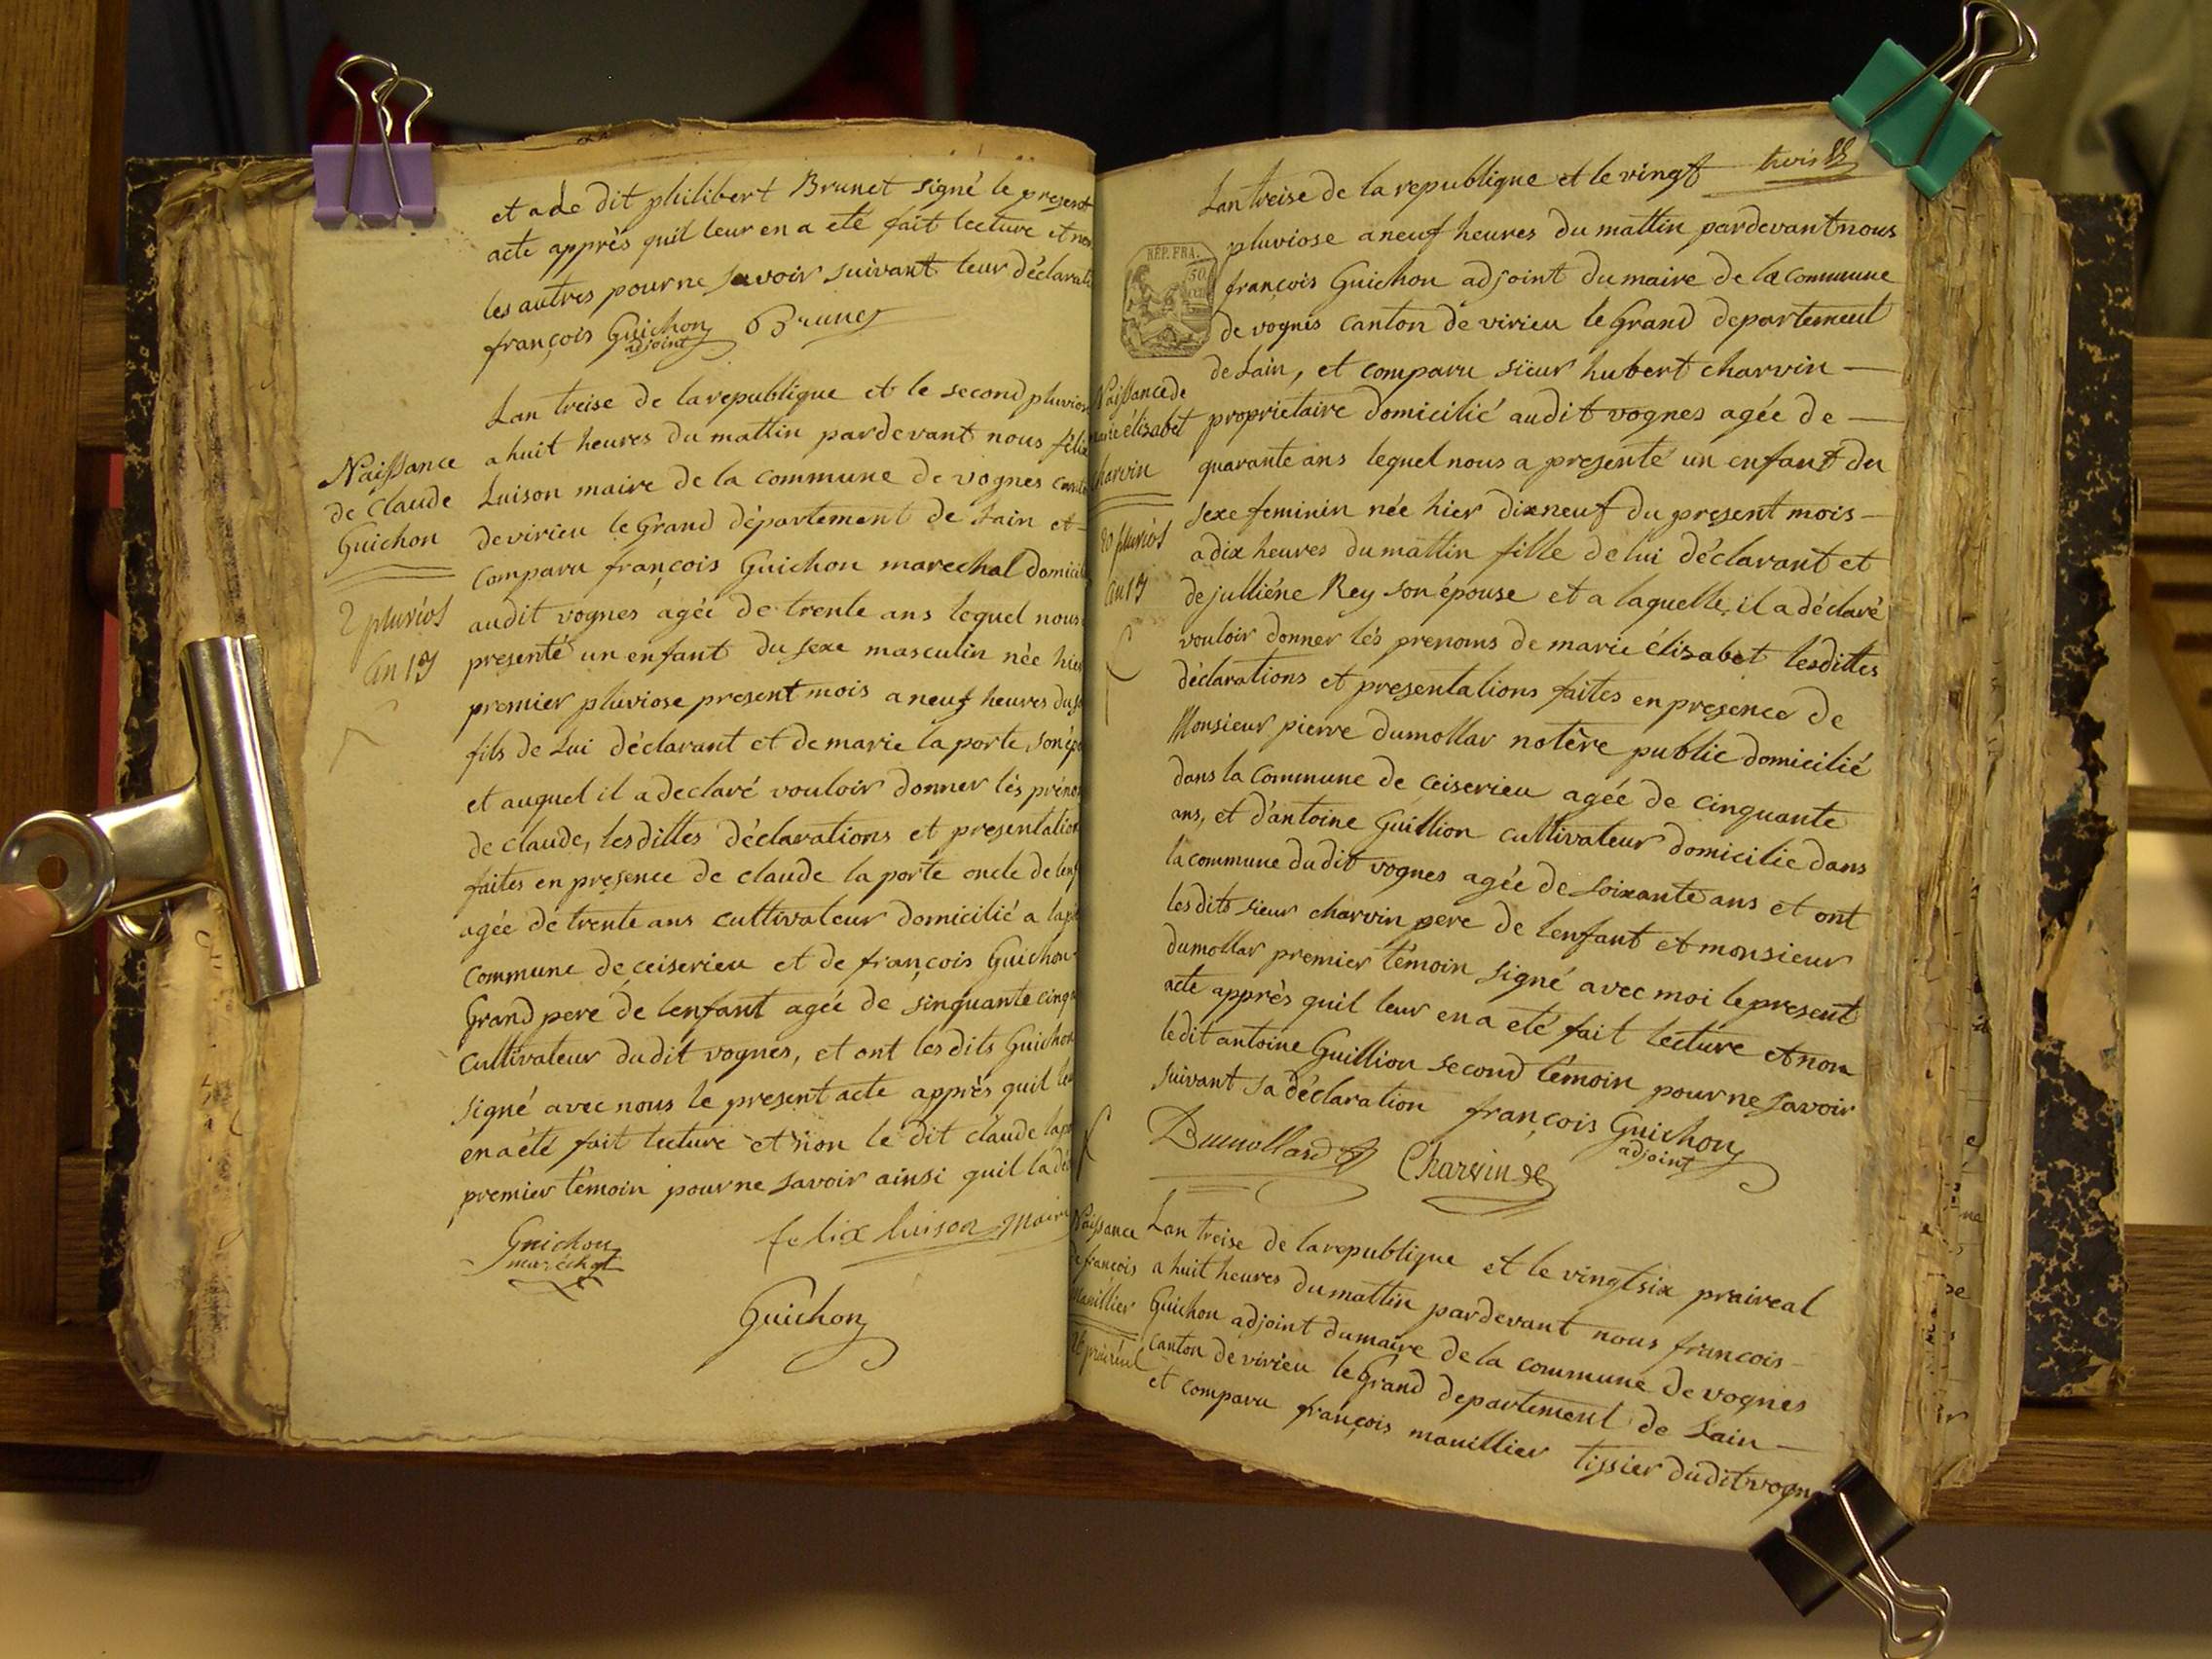 et a de dit philibert Brunet signé le present
acte apprès quil leur en a eté fait lecture et non
les autres pour ne savoir suivant leur déclarati
françois Guichon Brunet
adjoint
Lan treise de la republique et le second pluvios
a huit heures du mattin pardevant nous félix
Luison maire de la commune de vognes cant
de virieu le Grand département de Lain et
comparu françois Guichon marechal domicil
audit vognes agée de trente ans lequel nous
presenté un enfant du sexe masculin née hier
premier pluviose present mois a neuf heures du s
fils de Lui déclarant et de marie la porte son ép
et auquel il a declaré vouloir donner lés préno
de claude, lesdittes déclarations et presentation
faites en presence de claude la porte oncle de lenf
agée de trente ans cultivateur domicilié a
commune de ceiserieu et de françois Guichon
Grand pere de lenfant agée de sinquante cinq
cultivateur dudit vognes, et ont les dits Guichon
signé avec nous le present acte apprès quil leu
en a été fait lecture et non le dit claude lapo
premier témoin pour ne savoir ainsi quil la dé
Guichon felix luison maire
maréchal
Guichon
Naissance
de Claude
Guichon
2 pluviôs
an 13
trois
Lan treise de la republique et le vingt
pluviose a neuf heures du mattin pardevant nous
françois Guichon adjoint du maire de la commune
de vognes canton de virieu le Grand departement
de Lain, et comparu sieur hubert charvin
proprietaire domicilié audit vognes agée de
quarante ans lequel nous a presenté un enfant du
sexe feminin née hier dixneuf du present mois
a dix heures du mattin fille de lui déclarant et
de julliéne Rey son épouse et a laquelle il a déclaré
vouloir donner lés prenoms de marie élisabet lesdittes
déclarations et presentations faites en presence de
Monsieur pierre dumollar notère public domicilié
dans la commune de ceiserieu agée de cinquante
ans, et d'antoine Guillion cultivateur domicilie dans
la commune dudit vognes agée de soixante ans et ont
les dits sieur charvin pere de lenfant et monsieur
dumollar premier témoin signé avec moi le present
acte apprès quil leur en a eté fait lecture et non
ledit antoine Guillion second témoin pour ne savoir
suivant sa déclaration françois Guichon
adjoint
Dumollard Charvin
RÉP. FRA.
50
Naissance de
marie élisabet
charvin
20 pluviôs
an 13
Lan treise de la republique et le vingtsix praireal
a huit heures du mattin pardevant nous francois
Guichon adjoint du maire de la commune de vognes
canton de virieu le Grand departement de Lain
et comparu françois mauillier tissier dudit vogn
Naissance
de francois
Mauillier
26 praireal